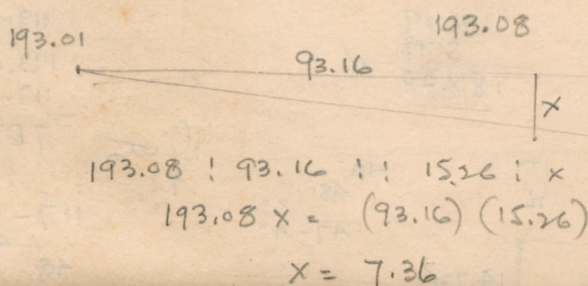 193.01
193.08
93.16
x
193.08 : 93.16 :: 15.26 : x
193.08 x = (93.16) (15.26)
x = 7.36